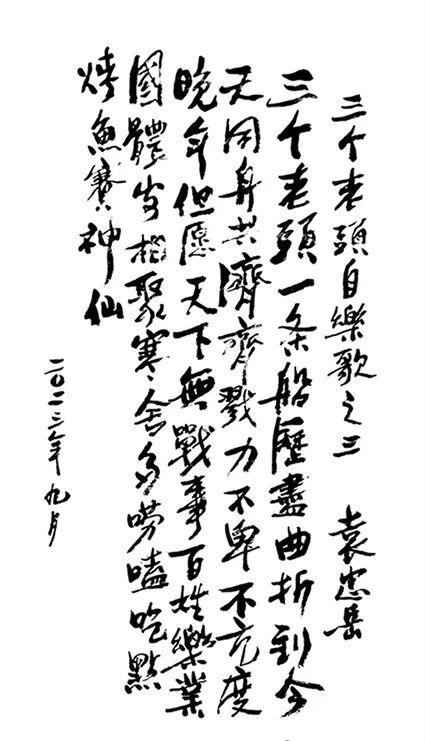 三个老頭自樂歌之三 袁忠岳
三个老頭一条船歷盡曲折到今
天同舟共濟齊戮力不卑不亢度
晚年但愿天下無戰事百姓樂業
國體安相聚寒舍多嘮嗑吃點
烤魚賽神仙
二〇二三年九月